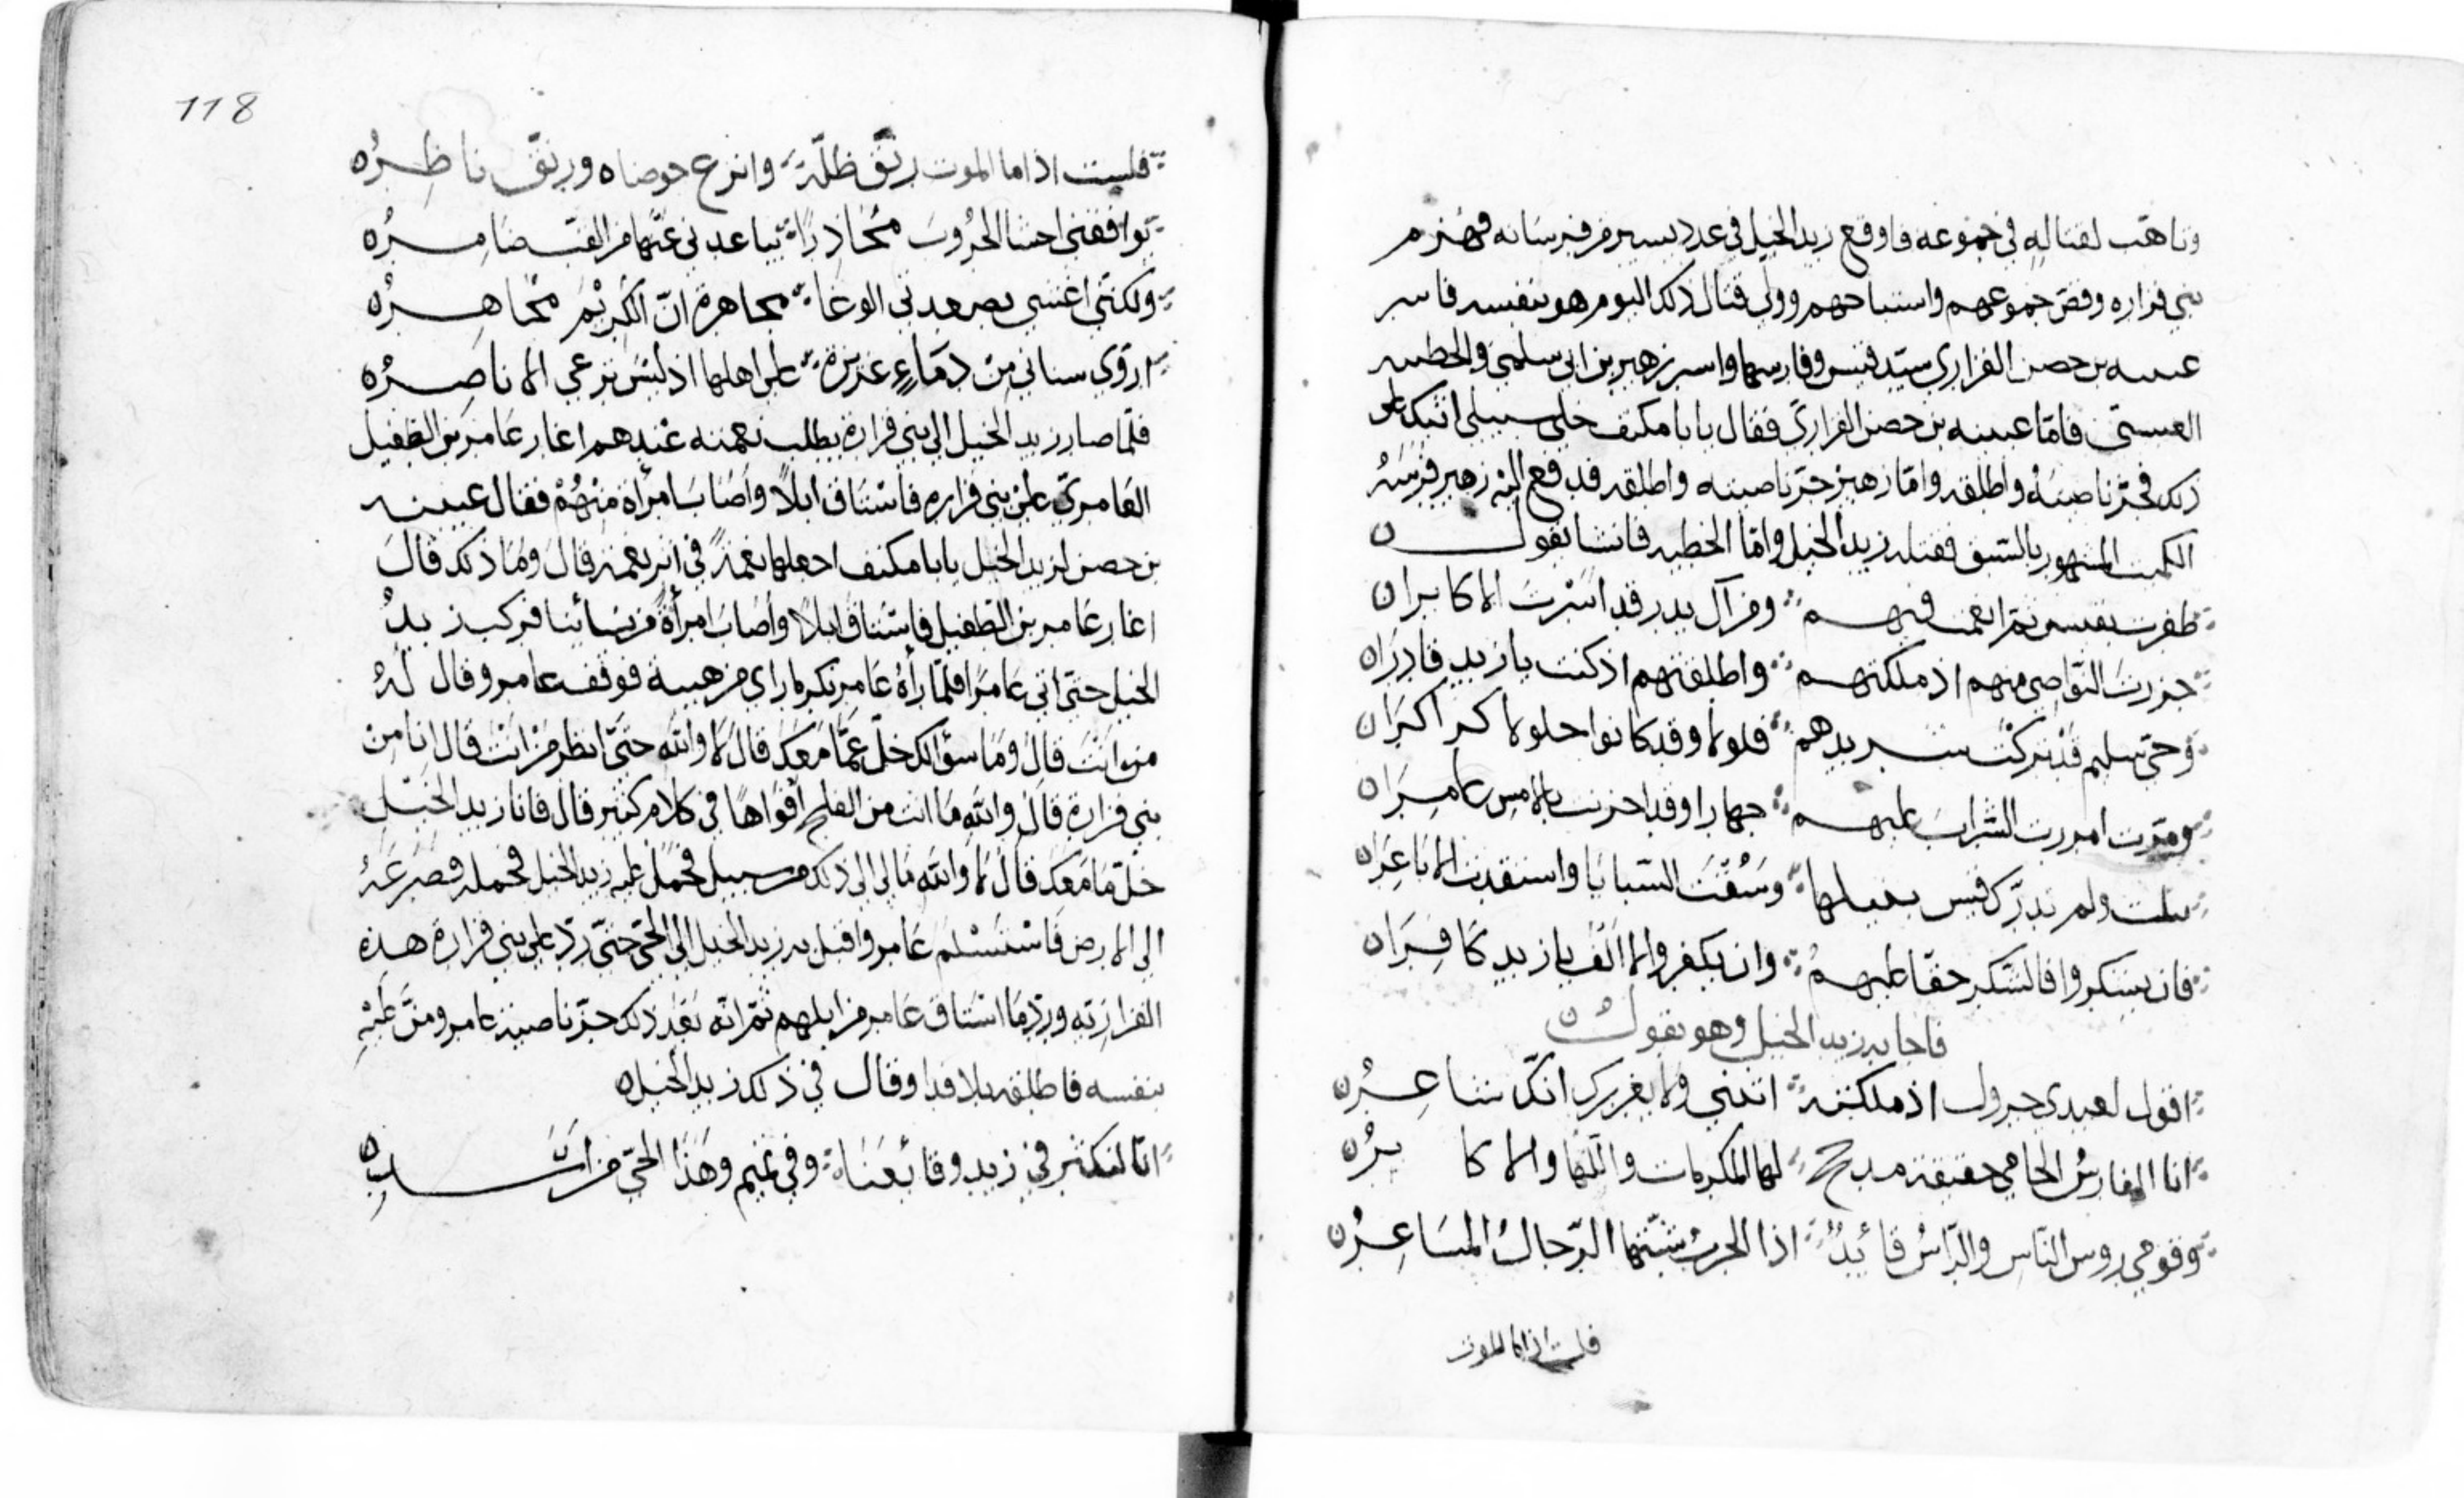 وتاهب لقتاله في جموعه فاوقع زيد الخيل في عدد يسير من فرسانه فهزم
بني فزاره وفض جموعهم واستباحهم وولي قتال ذلك اليوم هو بنفسه فاسر
عيينه بن حصن الفزاري سيد قيس وفارسها واسر زهير بن ابي سلمى والحطيه
العبسي فاما عيينه بن حصن الفزاري فقال يابا مكنف خلي سبيلي اثبك على
ذلك فجز ناصيته واطلقه واما زهير جز ناصيته واطلقه فدفع اليه زهير فرسه
الكميت المشهور بالسبق فقبله زيد الخيل واما الحطيه فانشا يقول
ظفرت بقيس ثم انعمت فيهم ومن آل بدر قد اسرت الاكابرا
جززت النواصي منهم اذ ملكتهم واطلقتهم اذ كنت يا زيد قادرا
وحي سليم قد تركت شريدهم فلولا وقد كانوا حلولا كراكرا
ومرت امررت الشراب عليهم جهارا وقد احزت بالامس عامرا
ولم تدرك قيس وسقت السبايا واستقدت الاباعرا
فان يشكروا فالشكر حقا عليهم وان يكفروا لا الف يا زيد كافرا
فاجابه زيد الخيل وهو يقول
اقول لعبدي جرول اذ ملكته اثبني ولا يغررك انك شاعر
انا الفارس الحامي حقيقة مدحج لها المكرمات واللها والاكابر
وقومي روس الناس والراس قائد اذا الحرب شبتها الرجال المساعر
فلست اذا ما الموت
118
فلست اذا ما الموت رنق ظلة وانرع حوضاه ورنق ناظره
توافقني اخشا الحروب محاذرا يباعدني عنها من القب ضامره
ولكنني اغشى بصعدتي الوغا مجاهرة ان الكريم مجاهره
اروي سناني من دماء عزيزة على اهلها اذ ليس ترعى الاناصره
فلما صار زيد الخيل الى بني فزارة يطلب نعمته عندهم اغار عامر بن الطفيل
العامري على بني فزاره فاستاق ابلا واصاب امرأة منهم فقال عيينه
بن حصن لزيد الخيل يابا مكنف اجعلها نعمة في اثر نعمة قال وما ذلك قال
اغار عامر بن الطفيل فاستاق ابلا واصاب امرأة من نسائنا فركب زيد
الخيل حتى اتى عامرا فلما رأه عامر نكر ما راي من هيبة فوقف عامر وقال له
من انت قال وما سؤالك خل عما معك قال لا والله حتى انظر من انت قال انا من
بني فزارة قال والله ما انت من الفلج افواها في كلام كثير قال فانا زيد الخيل
خل ما معك قال لا والله مالي الى ذلك من سبيل فحمل عليه زيد الخيل فحمله فصرعه
الى الارض فاستسلم عامر واقبل به زيد الخيل الى الحي حتى رد على بني فزارة هذه
الفزاريه ورد ما استاق عامر من ابلهم ثم انه بعد ذلك جز ناصية عامر ومن عليه
بنفسه فاطلقه بلا فدا وقال في ذلك زيد الخيل
انا لنكثر في زيد وقائعنا وفي تميم وهذا الحي من اسد